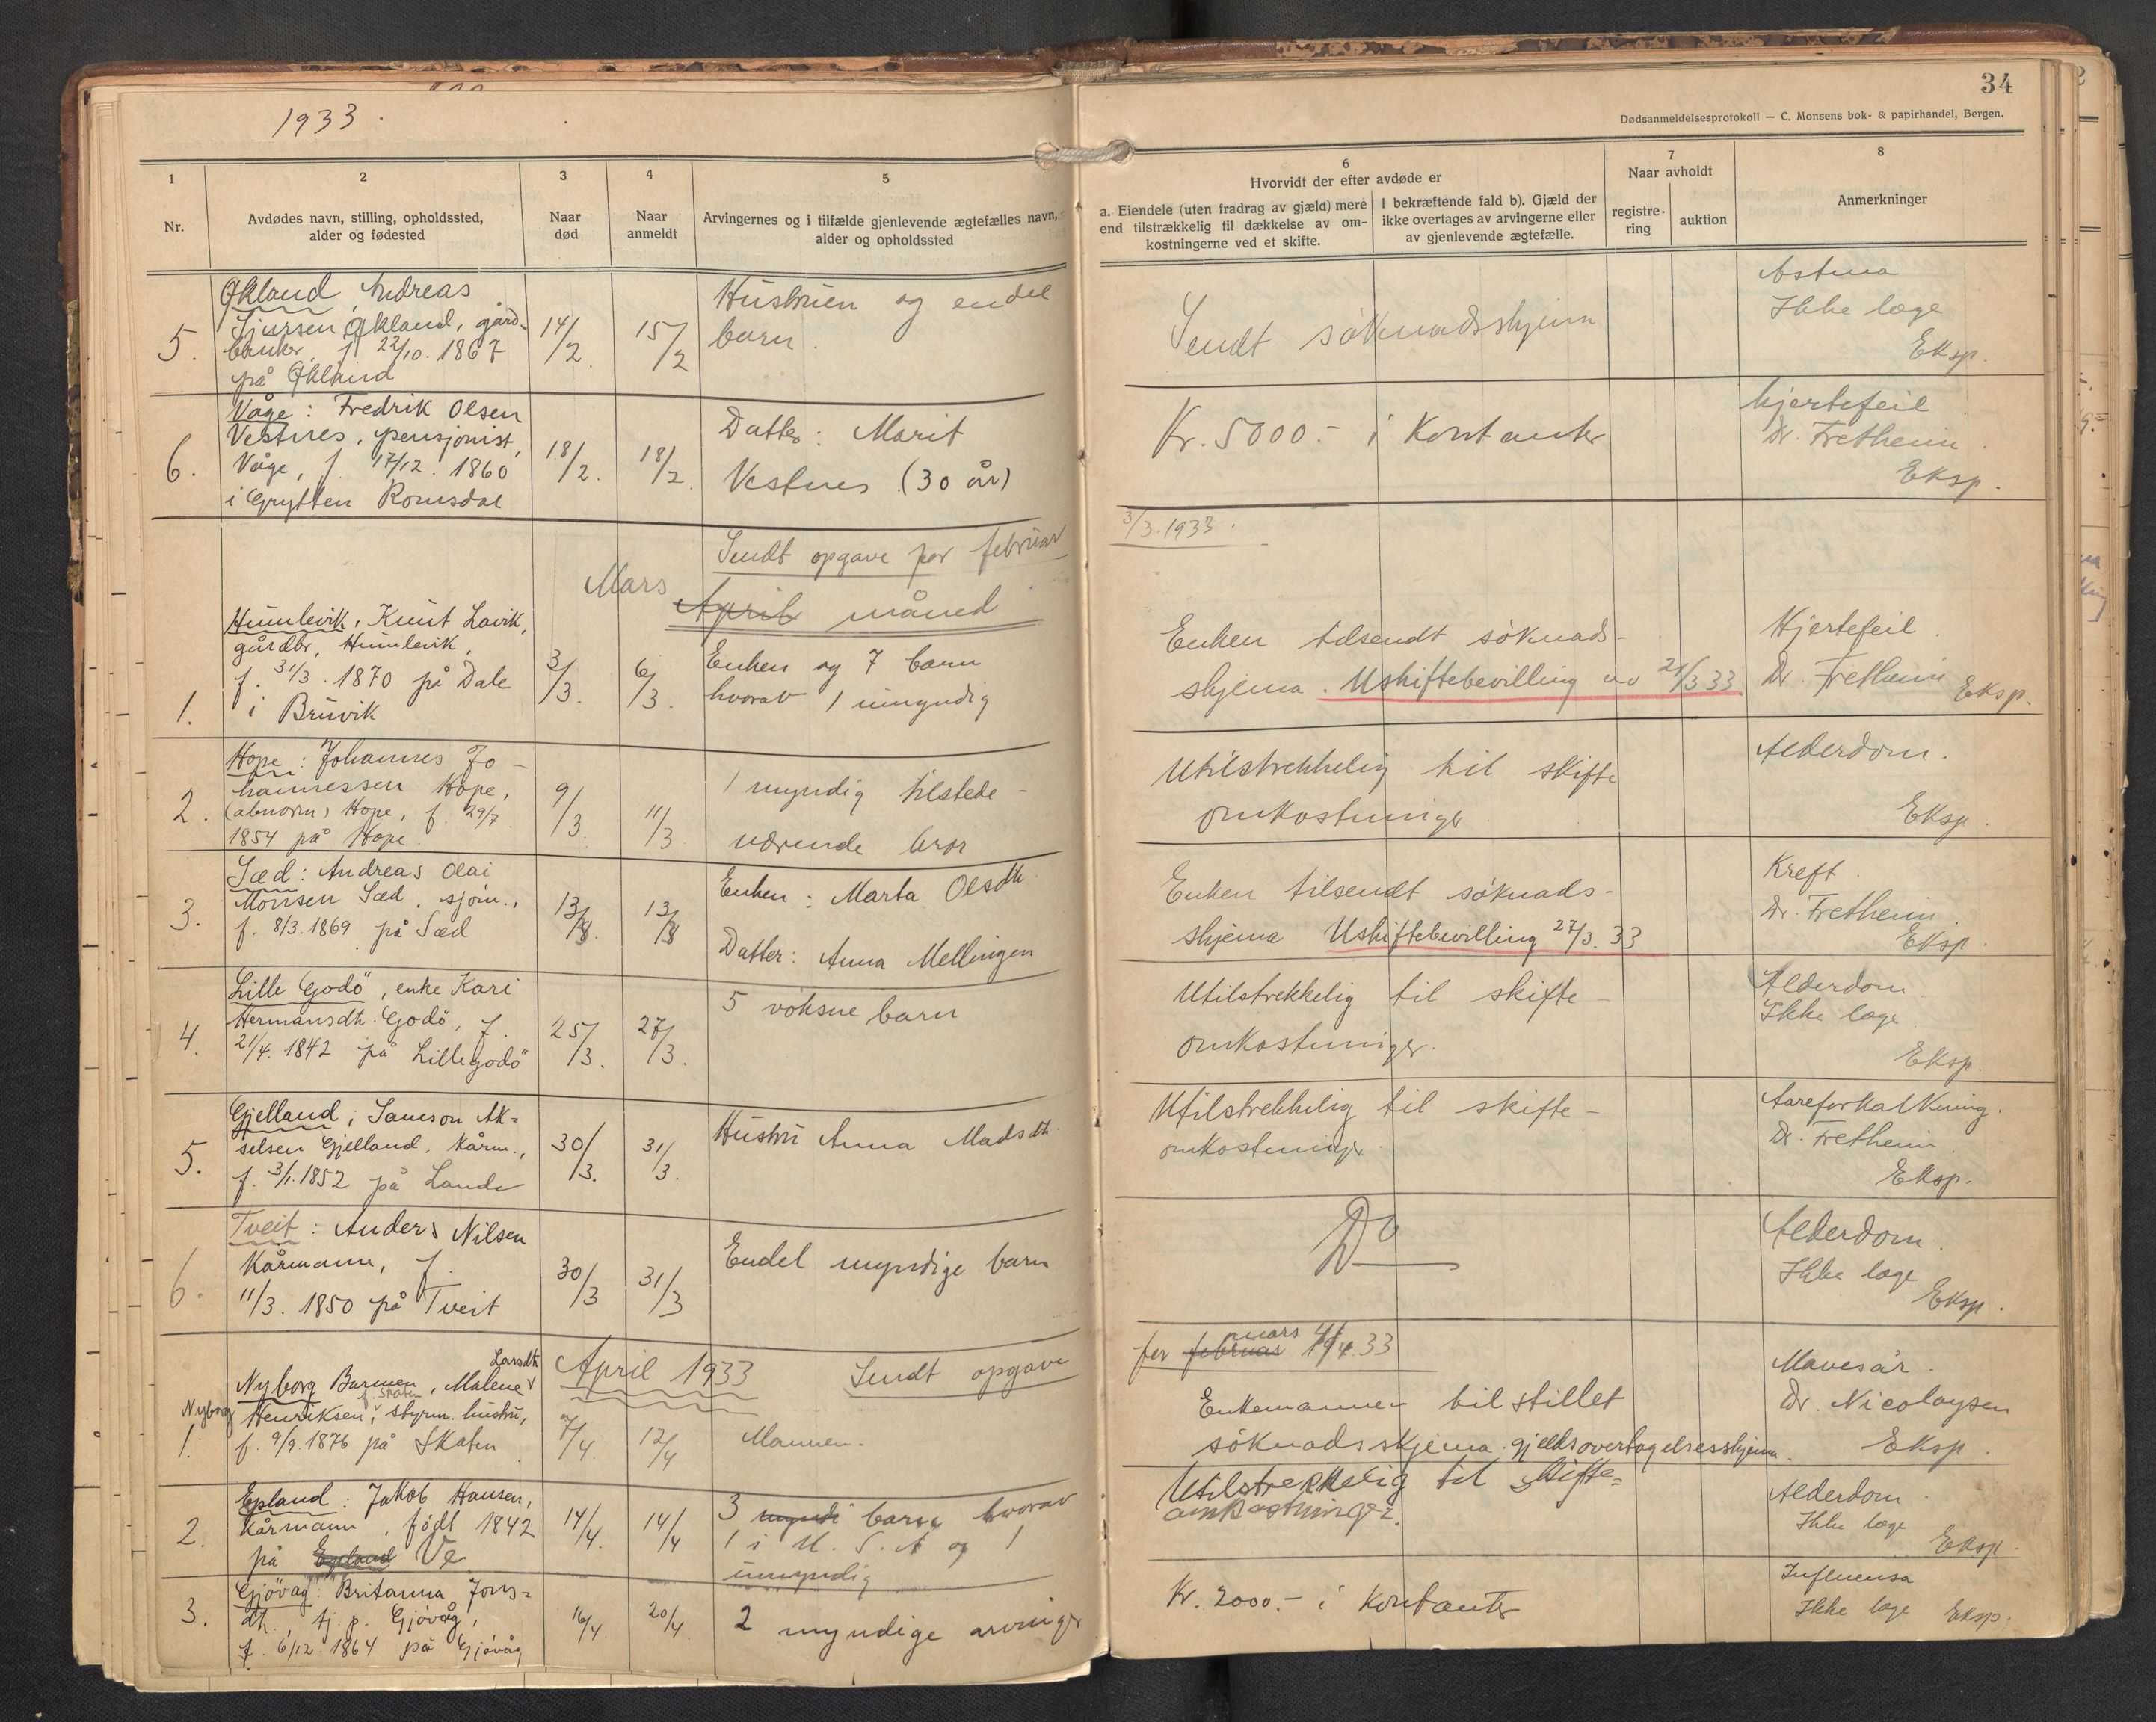 1933.
34
Dødsanmeldelsesprotokoll — C. Monsens bok- & papirhandel, Bergen.
1
Nr.
2
Avdødes navn, stilling, opholdssted,
alder og fødested
3
Naar
død
4
Naar
anmeldt
5
Arvingernes og i tilfælde gjenlevende ægtefælles navn,
alder og opholdssted
6
Hvorvidt der efter avdøde er
a. Eiendele (uten fradrag av gjæld) mere
end tilstrækkelig til dækkelse av om-
kostningerne ved et skifte.
I bekræftende fald b). Gjæld der
ikke overtages av arvingerne eller
av gjenlevende ægtefælle.
7
Naar avholdt
registre-
ring
auktion
8
Anmerkninger
5.
Økland, Andreas
Sjursen Økland, gård-
bruker, f. 22/10. 1867
på Økland
14/2.
15/2
Hustruen og endel
barn.
Sendt søknadsskjema
Astma
Ikke læge
Eksp.
6.
Våge: Fredrik Olsen
Vestnes, pensjonist,
Våge, f. 17/12. 1860
i Grytten Romsdal
18/2.
18/2.
Datter: Marit
Vestnes (30 år)
Kr. 5000.- i Kontanter
Hjertefeil.
Dr. Fretheim.
Eksp.
Sendt opgave for februar
3/3. 1933.
Mars
April måned
1.
Humlevik, Knut Lavik,
gårdbr, Humlevik,
f. 31/3. 1870 på Dale
i Bruvik
3/3.
6/3.
Enken og 7 barn
hvorav 1 umyndig
Enken tilsendt søknads-
skjema. Uskiftebevilling av 21/3 33
Hjertefeil.
Dr. Fretheim
Eksp.
2.
Hope: Johannes Jo-
hannessen Hope,
(abnorm) Hope, f. 29/7
1854 på Hope.
9/3.
11/3
1 myndig tilstede-
værende bror
Utilstrekkelig til skifte
omkostninger
Alderdom.
Eksp.
3.
Sæd: Andreas Olai
Monsen Sæd, sjøm.,
f. 8/3. 1869 på Sæd
13/3.
13/3
Enken: Marta Olsdtr.
Datter: Anna Mellingen
Enken tilsendt søknads-
skjema Uskiftebevilling 27/3. 33
Kreft.
Dr. Fretheim.
Eksp.
4.
Lille Godö, enke Kari
Hermansdtr. Godö, f.
21/4. 1842 på Lillegodö
25/3.
27/3.
5 voksne barn
Utilstrekkelig til skifte-
omkostninger.
Alderdom
Ikke læge
Eksp.
5.
Gjelland, Samson Ak-
selsen Gjelland, kårm.,
f. 3/1. 1852 på Lande
30/3.
31/3.
Hustru Anna Madsdtr.
Utilstrekkelig til skifte-
omkostninger
Aareforkalkning.
Dr. Fretheim.
Eksp.
6.
Tveit: Anders Nilsen
Kårmann, f.
11/3. 1850 på Tveit
30/3
31/3
Endel myndige barn
Do
Alderdom.
Ikke læge
Eksp.
April 1933
Sendt opgave
for februar mars 4/4. 33
Nyborg
1.
Larsdtr
Nyborg Barmen, Malene
f. Skaten
Henriksen, styrm. hustru,
f. 9/9. 1876 på Skaten
7/4.
12/4
Mannen.
Enkemannen tilstillet
søknadsskjema gjeldsovertagelsesskjema.
Mavesår.
Dr. Nicolaysen
Eksp.
2.
Epland: Jakob Hansen,
Kårmann, født 1842
på Epland Ve
14/4.
14/4
3 myndi barn hvorav
1 i U.S.A og 1
umyndig
Utilstrekkelig til skifte-
omkostninger.
Alderdom.
Ikke læge
Eksp.
3.
Gjövåg: Britanna Jons-
dt. tj. p. Gjövåg,
f. 6/12. 1864 på Gjövåg
16/4
20/4
2 myndige arvinger
Kr. 2000.- i Kontanter
Influensa
Ikke læge
Eksp.